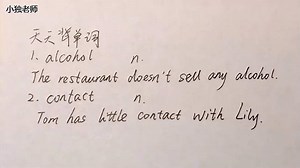 小独老师
天天背单词
1. alcohol n.
The restaurant doesn't sell any alcohol.
2. contact n.
Tom has little contact with Lily.